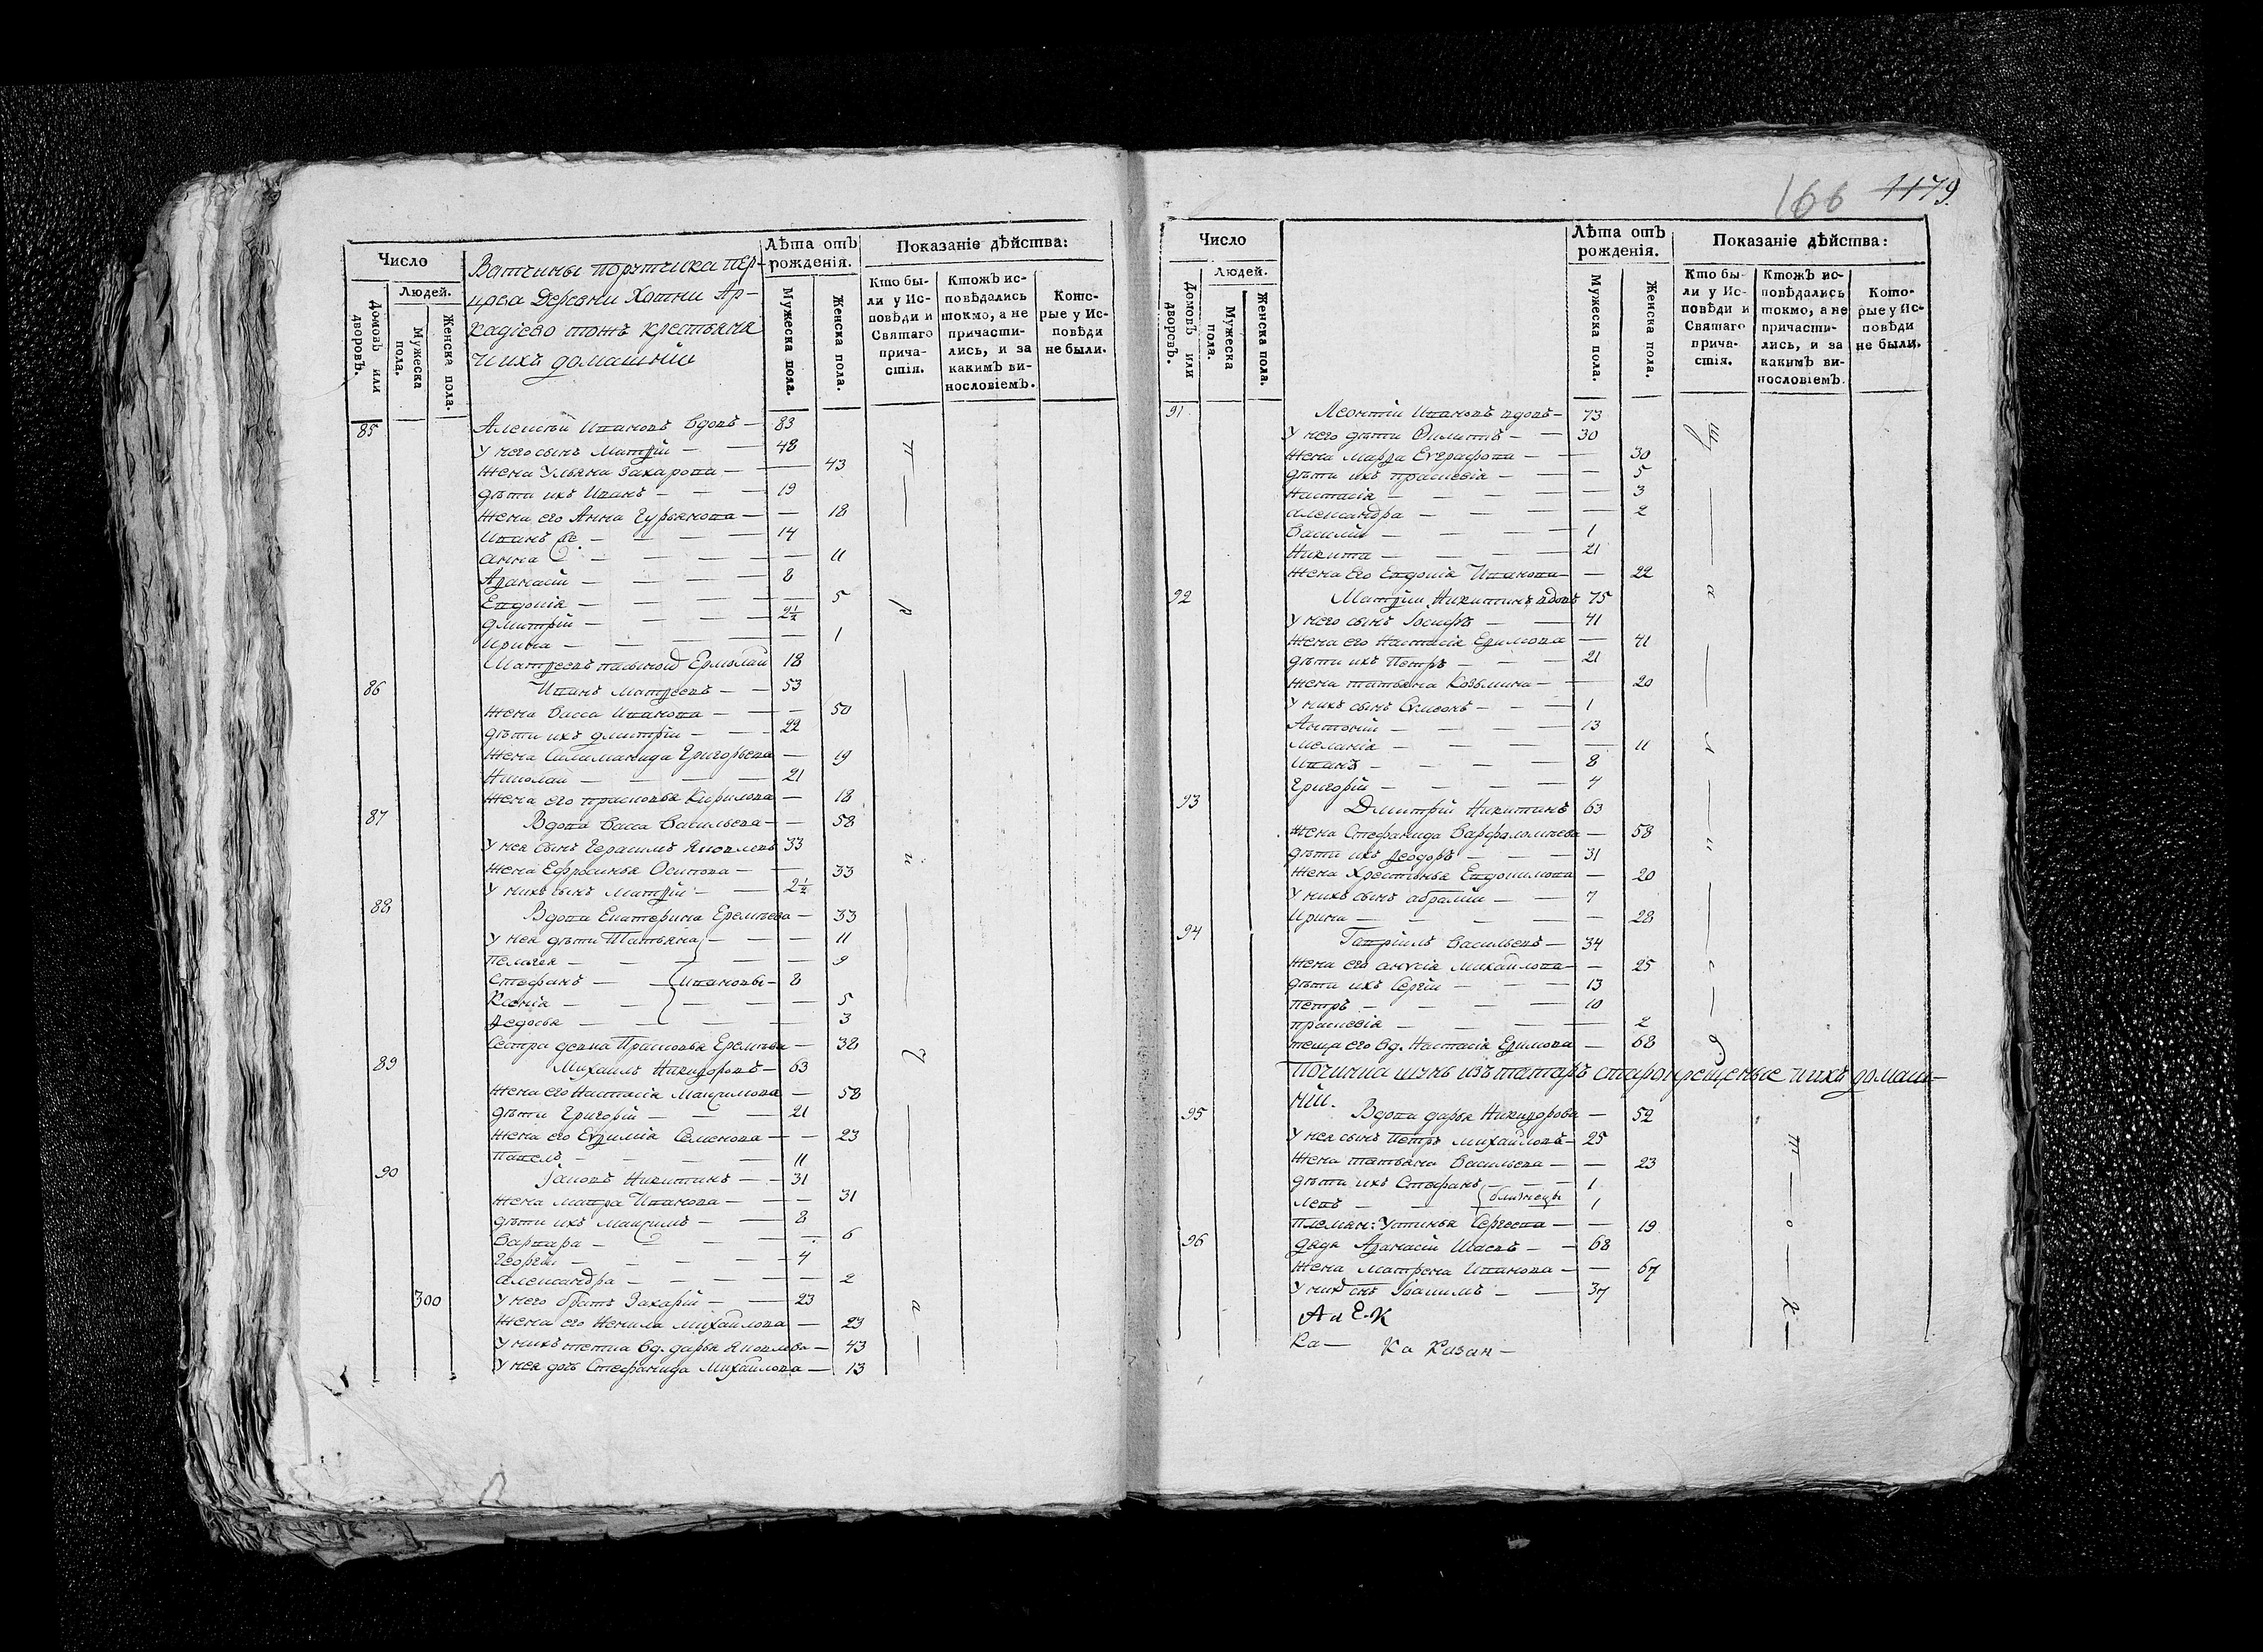 166 1179.
Число
Людей.
Домовъ или дворовъ.
Мужеска пола.
Женска пола.
Вотчины порутчика Пер-
цова Деревни Хотни Ар-
кадіево тожъ крестьяня
и ихъ домашніи
Лѣта отъ рожденія.
Мужеска пола.
Женска пола.
Показаніе дѣйства:
Кто бы-
ли у Ис-
повѣди и
Святаго
прича-
стія.
Ктожъ ис-
повѣдались
токмо, а не
причасти-
лись, и за
какимъ ви-
нословіемъ.
Кото-
рые у Ис-
повѣди
не были.
85 Алексѣй Ивановъ вдовъ — 83
У него сынъ Матѳій — 48
Жена Ульяна Захарова — 43
Дѣти ихъ Иванъ — 19
Жена его Анна Гурьянова — 18
Иванъ же — 14
Анна — 11
Аѳанасій — 8
Евдокія — 5
Дмитрій — 2½
Ирина — 1
Матѳеевъ пасынок Ермолай 18
86 Иванъ Матѳеевъ — 53
Жена Васса Иванова — 50
Дѣти ихъ Дмитрій — 22
Жена Саламанида Григорьева — 19
Николай — 21
Жена его Прасковья Кирилова — 18
87 Вдова Васса Васильева — 58
У нея сынъ Герасимъ Яковлевъ 33
Жена Ефросинья Осипова — 33
У нихъ сынъ Матѳій — 2½
88 Вдова Екатерина Еремѣева — 33
У нея дѣти Татьяна — 11
Пелагея — 9
Стефанъ — Ивановы — 8
Ксенія — 5
Ѳедосья — 3
Сестра девка Прасковья Еремѣева — 38
89 Михаилъ Никиѳоровъ — 63
Жена его Настасія Максимова — 58
Дѣти Григорій — 21
Жена его Евѳимія Семенова — 23
Павелъ — 11
90 Іаковъ Никитинъ — 31
Жена Мавра Иванова — 31
Дѣти ихъ Максимъ — 8
Варвара — 6
Георгій — 4
Александра — 2
300 У него братъ Захарій — 23
Жена его Ненила Михайлова — 23
У нихъ тетка вд. Дарья Яковлева — 43
У нея дочь Стефанида Михайлова — 13
Число
Людей.
Домовъ или дворовъ.
Мужеска пола.
Женска пола.
Лѣта отъ рожденія.
Мужеска пола.
Женска пола.
Показаніе дѣйства:
Кто бы-
ли у Ис-
повѣди и
Святаго
прича-
стія.
Ктож ис-
повѣдались
токмо, а не
причасти-
лись, и за
какимъ ви-
нословіемъ.
Кото-
рые у Ис-
повѣди
не были.
91 Леонтій Ивановъ вдовъ — 73
У него дѣти Филипъ — 30
Жена Марѳа Евграфова — 30
Дѣти ихъ Праскевія — 5
Настасія — 3
Александра — 2
Василій — 1
Никита — 21
Жена его Евдокія Иванова — 22
92 Матѳій Никитинъ вдовъ 75
У него сынъ Іосифъ — 41
Жена его Настасія Еѳимова — 41
Дѣти ихъ Петръ — 21
Жена Татьяна Козьмина — 20
У нихъ сынъ Симеонъ — 1
Антоній — 13
Меланія — 11
Иванъ — 8
Григорій — 4
93 Дмитрій Никитинъ 63
Жена Стефанида Варфоломѣева — 58
Дѣти ихъ Ѳеодоръ — 31
Жена Хрестинья Евдокимова — 20
У нихъ сынъ Абрамій — 7
Ирина — 28
94 Гавріилъ Васильевъ — 34
Жена его Анусія Михайлова — 25
Дѣти ихъ Сергій — 13
Петръ — 10
Праскевія — 2
Теща его вд. Настасія Еѳимова — 68
Починка изъ татаръ старокрещеные и ихъ домаш-
ніи.
95 Вдова Дарья Никиѳорова — 52
У нея сынъ Петръ Михайловъ — 25
Жена Татьяна Васильева — 23
Дѣти ихъ Стефанъ — 1
Левъ — близнецы 1
Племян: Устинья Сергеева — 19
96 Дядя Аѳанасій Исаевъ — 68
Жена Матрена Иванова — 67
У них снъ Іоакимъ — 37
А и Е. К
Ка — Ка Казан —